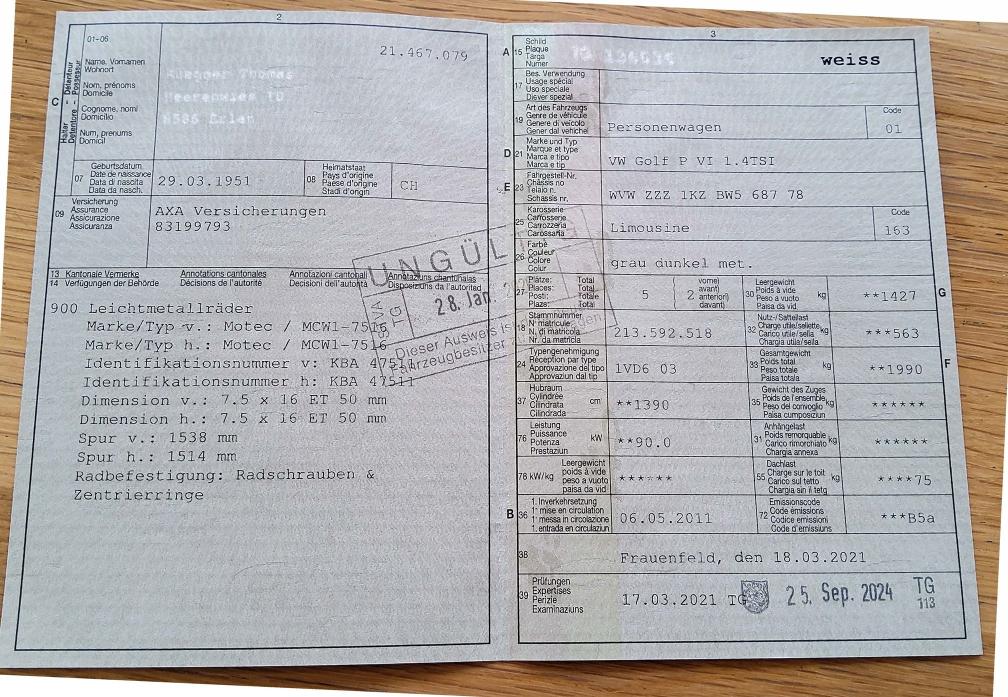 2
01-06
21.467.079
C
Halter - Détenteur
Detentore - Possessur
Name, Vornamen
Wohnort
Nom, prénoms
Domicile
Cognome, nomi
Domicilio
Num, prenums
Domicil
07
Geburtsdatum
Date de naissance
Data di nascita
Data da nasch.
29.03.1951
08
Heimatstaat
Pays d'origine
Paese d'origine
Stadi d'origin
CH
09
Versicherung
Assurance
Assicurazione
Assicuranza
AXA Versicherungen
83199793
13 Kantonale Vermerke Annotations cantonales Annotazioni cantonali Annotaziuns chantunalas
14 Verfügungen der Behörde Décisions de l'autorité Decisioni dell'autorità Disposiziuns da l'autoritad
900 Leichtmetallräder
Marke/Typ v.: Motec / MCW1-7516
Marke/Typ h.: Motec / MCW1-7516
Identifikationsnummer v: KBA 47511
Identifikationsnummer h: KBA 47511
Dimension v.: 7.5 x 16 ET 50 mm
Dimension h.: 7.5 x 16 ET 50 mm
Spur v.: 1538 mm
Spur h.: 1514 mm
Radbefestigung: Radschrauben &
Zentrierringe
SVA
TG
28. Jan.
Dieser Ausweis is
Fahrzeugbesitzer
3
A 15
Schild
Plaque
Targa
Numer
weiss
17
Bes. Verwendung
Usage spécial
Uso speciale
Diever spezial
19
Art des Fahrzeugs
Genre de véhicule
Genere di veicolo
Gener dal vehichel
Personenwagen
Code
01
D 21
Marke und Typ
Marque et type
Marca e tipo
Marca e tip
VW Golf P VI 1.4TSI
E 23
Fahrgestell-Nr.
Châssis no
Telaio n.
Schassis nr.
WVW ZZZ 1KZ BW5 687 78
25
Karosserie
Carrosserie
Carrozzeria
Carossaria
Limousine
Code
163
26
Farbe
Couleur
Colore
Colur
grau dunkel met.
27
Plätze: Total
Places: Total
Posti: Totale
Plazs: Total
5
2
vorne)
avant)
anteriori)
davant)
30
Leergewicht
Poids à vide
Peso a vuoto
Paisa da vid
kg
**1427
G
18
Stammnummer
N° matricule
N. di matricola
Nr. da matricla
213.592.518
32
Nutz-/Sattellast
Charge utile/sellette
Carico utile/sella
Chargia utila/sella
kg
***563
24
Typengenehmigung
Réception par type
Approvazione del tipo
Approvaziun dal tip
1VD6 03
33
Gesamtgewicht
Poids total
Peso totale
Paisa totala
kg
**1990
F
37
Hubraum
Cylindrée
Cilindrata
Cilindrada
cm
**1390
35
Gewicht des Zuges
Poids de l'ensemble
Peso del convoglio
Paisa cumposiziun
kg
******
76
Leistung
Puissance
Potenza
Prestaziun
kW
**90.0
31
Anhängelast
Poids remorquable
Carico rimorchiato
Chargia annexa
kg
******
78 kW/kg
Leergewicht
poids à vide
peso a vuoto
paisa da vid
******
55
Dachlast
Charge sur le toit
Carico sul tetto
Chargia sin il tetg
kg
****75
B 36
1. Inverkehrsetzung
1re mise en circulation
1a messa in circolazione
1. entrada en circulaziun
06.05.2011
72
Emissionscode
Code émissions
Codice emissioni
Code d'emissiuns
***B5a
38
Frauenfeld, den 18.03.2021
39
Prüfungen
Expertises
Perizie
Examinaziuns
17.03.2021 TG
25. Sep. 2024
TG
113